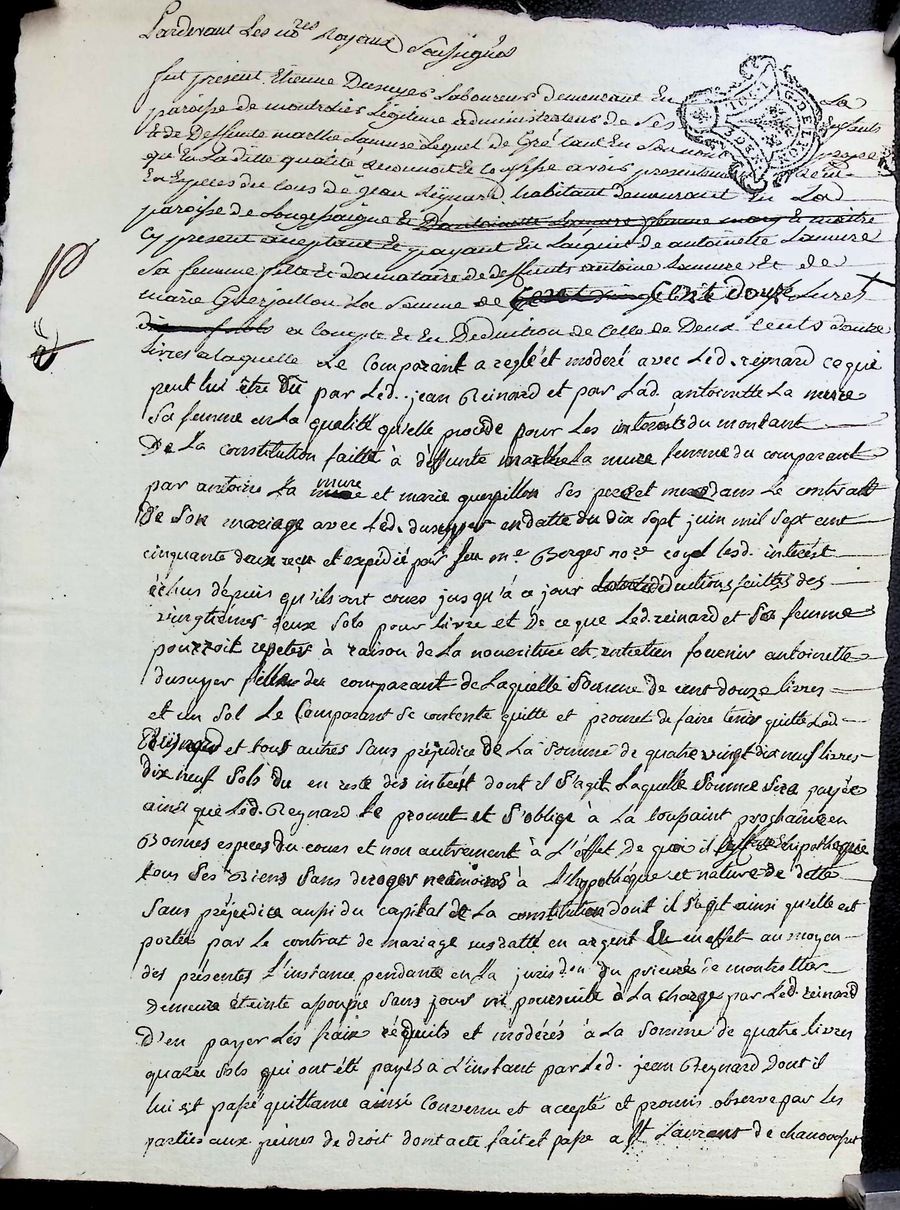 Pardevant Les no.res Royaux Soussignés
fut present Etienne Dusuyer Laboureur demeurant En La
paroisse de montroties Légitime administrateur de Ses Enfants
& de Deffunte marthe Lamure Lequel de Gré tant En Son nom propre
qu'En La ditte qualité reconnoit et Confesse avoir presentement
En Espèces du cours de jean Reynard habitant demeurant En La d
paroisse de Longessaigne Et D'antoinette Lamure femme
Cy present acceptant Et payant En L'acquit de antoinette Lamure
Sa femme fille Et donnataire de deffunts antoine Lamure Et de
marie Guerpillon La Somme de Cent Douze Livres
a Compte & En Deduction de Celle de Deux Cents douze
livres a laquelle Le Comparant a reglé et moderé avec Led. reynard ce qui
peut lui être Dû par Led. jean Reinard et par Lad antoinette La mure
Sa femme en La qualité qu'elle procéde pour Les interets du montant
De La constitution faitte à deffunte marthe La mure femme du comparant
par antoine La mure et marie guerpillon Ses pere et mere dans Le contrat
De Son mariage avec Led. dusuyer en datte du dix Sept juin mil Sept cent
cinquante deux reçu et expedié par feu me Borges nore royal lesd. intérêt
échus dépuis qu'ils ont couru jusqu'à ce jour deductions faittes des
vingtiémes deux Sols pour livre et De ce que Led. reinard et Sa femme
pourroit repeter à raison de La nouriture et entretien fournir antoinette
dusuyer fille du comparant de Laquelle Somme de cent douze livres
et un Sol Le Comparant Se contente quitte et promet de faire tenir quitte Led.
Reynard et tous autres Sans préjudice de La Somme de quatre vingt dix neuf livres
dix neuf Sols du en reste des intérêt dont il S'agit Laquelle Somme Sera payée
ainsi que Led. Reynard Le promet et S'oblige à La toussaint prochaine en
Bonnes espèces du cours et non autrement à L'effet de quoi il hipotheque
tous Ses Biens Sans deroger néamoins à L'hypothéque et nature de dette
Sans préjudice aussi du capital de La constitution dont il S'agit ainsi qu'elle est
portée par Le contrat de mariage susdatté en argent en effet au moyen
des présentes L'instance pendante en La jurison du prieuré de montrottier
Demeure éteinte assoupie Sans jour ni poursuite à La charge par Led. reinard
D'en payer Les fraix réduits et modérés à La Somme de quatre livres
quatre Sols qui ont été payés à L'instant par Led. jean Reynard Dont il
lui est passé quittance ainsi Convenu et accepté et promis observe par les
parties aux peines de droit dont acte fait et passé a St Laurent de chamousset